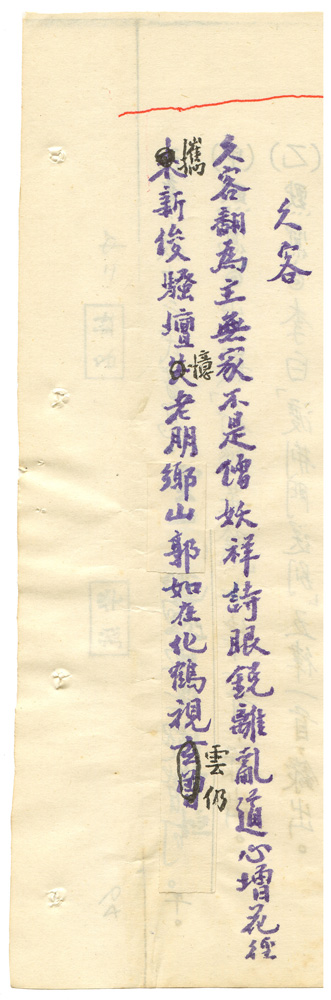 久客
久客翻為主無家不是僧妖祥詩眼銳離亂道心增花徑
攜
新俊騷壇老朋鄉山郭如在化鶴視玄曾
雲仍